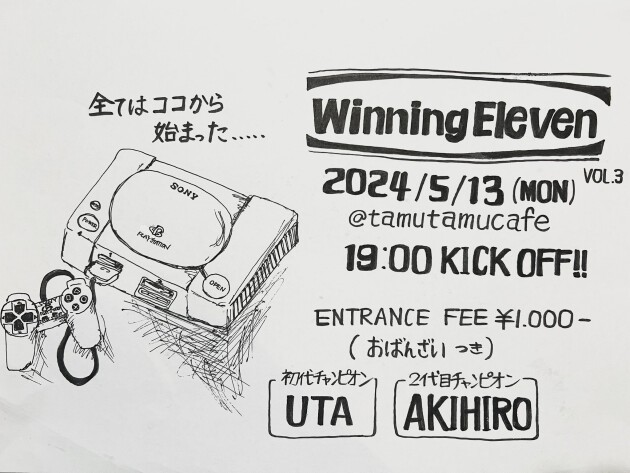 全てはココから
始まった.....
SONY
PLAYSTATION
POWER
OPEN
Winning Eleven
VOL.3
2024/5/13 (MON)
@tamutamucafe
19:00 KICK OFF!!
ENTRANCE FEE ¥1.000-
(おばんざい つき)
初代チャンピオン
UTA
2代目チャンピオン
AKIHIRO